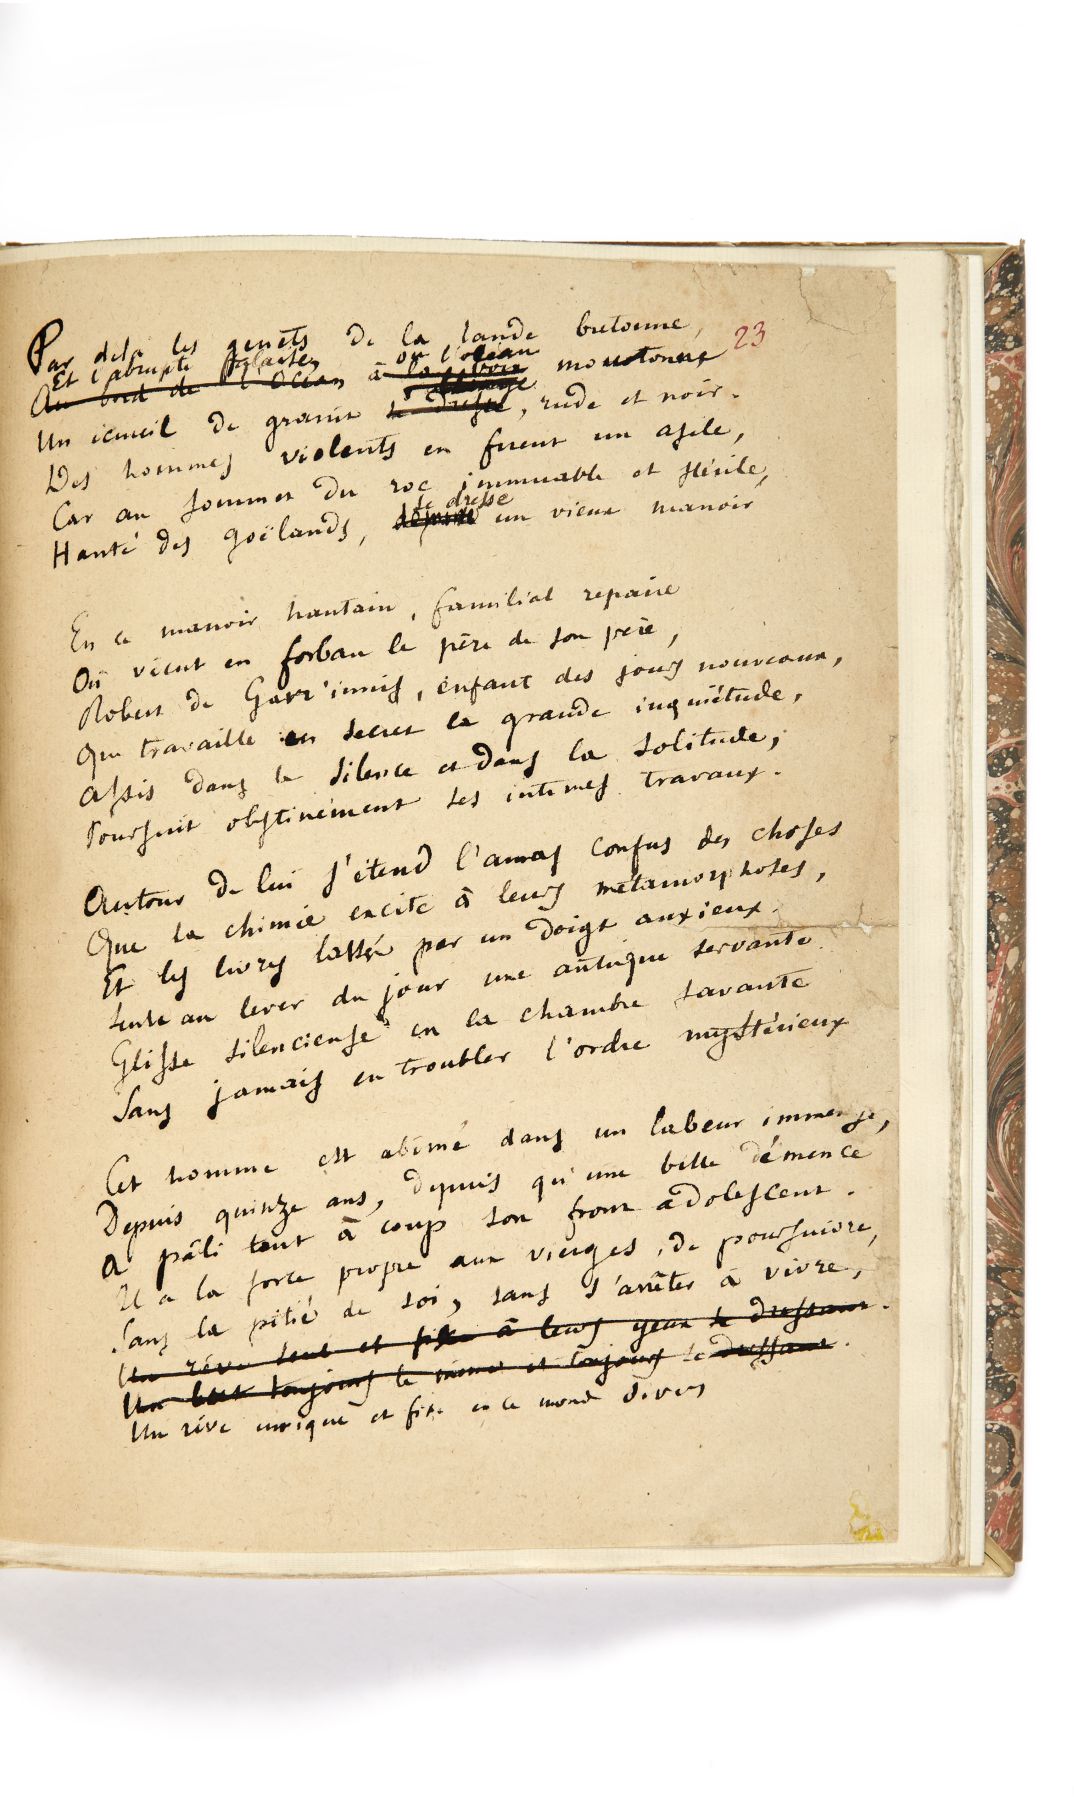 23
Par delà les genêts de la lande bretonne,
Et l'abrupte falaise où l'océan
Au bord de l'Océan à la voix monotone
Un écueil de granit se dresse, rude et noir.
Des hommes violents en firent un asile,
Car au sommet du roc immuable et stérile,
se dresse
Hanté des goëlands, un vieux manoir
En ce manoir hautain, familial repaire
Où vécut en forban le père de son père,
Robert de Gavr'innis, enfant des jours nouveaux,
Que travaille en secret la grande inquiétude,
Assis dans le silence et dans la solitude,
Poursuit obstinément ses intimes travaux.
Autour de lui s'étend l'amas confus des choses
Que la chimie excite à leurs métamorphoses,
Et les livres lassés par un doigt anxieux.
Seule au lever du jour une antique servante
Glisse silencieuse en la chambre savante
Sans jamais en troubler l'ordre mystérieux
Cet homme est abîmé dans un labeur immense,
Depuis quinze ans, depuis qu'une belle démence
A pâli tout à coup son front adolescent.
Il a la force propre aux vierges, de poursuivre,
Sans la pitié de soi, sans s'arrêter à vivre,
Un rêve seul et fixe à leurs yeux se dressant.
Un but toujours le même et toujours se dressant.
Un rêve unique et fixe en ce monde divers